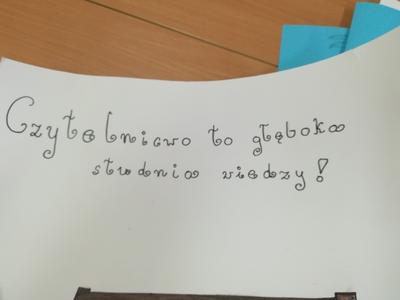 Czytelnictwo to głęboka
studnia wiedzy!